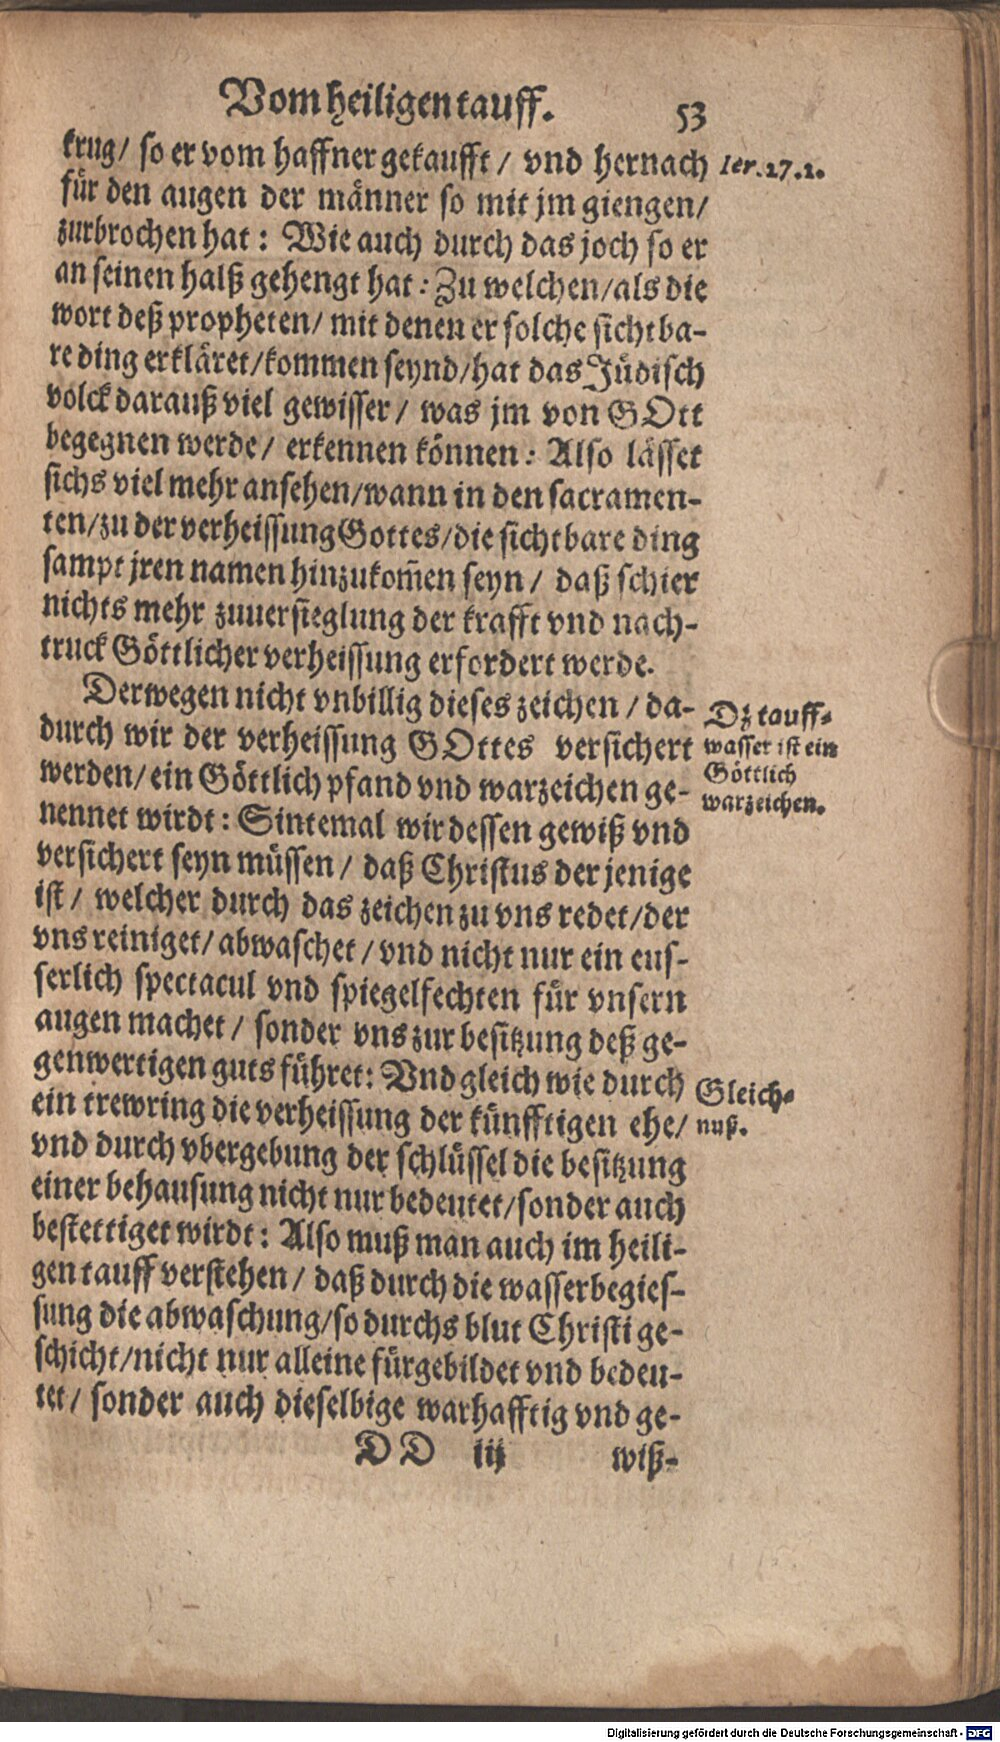 Vom heiligen tauff. 53
krug/ so er vom haffner gekaufft/ vnd hernach
Ier.27.2.
für den augen der männer so mit jm giengen/
zurbrochen hat: Wie auch durch das joch so er
an seinen halß gehengt hat: Zu welchen/als die
wort deß propheten/ mit denen er solche sichtba-
re ding erkläret/kommen seynd/hat das Jüdisch
volck darauß viel gewisser/ was jm von GOtt
begegnen werde/ erkennen können: Also lässet
sichs viel mehr ansehen/wann in den sacramen-
ten/zu der verheissung Gottes/die sichtbare ding
sampt jren namen hinzukom̃en seyn/ daß schier
nichts mehr zuuersieglung der krafft vnd nach-
truck Göttlicher verheissung erfordert werde.
Derwegen nicht vnbillig dieses zeichen/ da-
durch wir der verheissung GOttes versichert
werden/ein Göttlich pfand vnd warzeichen ge-
nennet wirdt: Sintemal wir dessen gewiß vnd
versichert seyn müssen/ daß Christus der jenige
ist/ welcher durch das zeichen zu vns redet/der
vns reiniget/abwaschet/vnd nicht nur ein eus-
serlich spectacul vnd spiegelfechten für vnsern
augen machet/ sonder vns zur besitzung deß ge-
genwertigen guts führet: Vnd gleich wie durch
ein trewring die verheissung der künfftigen ehe/
vnd durch vbergebung der schlüssel die besitzung
einer behausung nicht nur bedeutet/sonder auch
bestettiget wirdt: Also muß man auch im heili-
gen tauff verstehen/ daß durch die wasserbegies-
sung die abwaschung/so durchs blut Christi ge-
schicht/nicht nur alleine fürgebildet vnd bedeu-
tet/ sonder auch dieselbige warhafftig vnd ge-
Dz tauff-
wasser ist ein
Göttlich
warzeichen.
Gleich-
nuß.
DD iij wiß-
Digitalisierung gefördert durch die Deutsche Forschungsgemeinschaft - DFG